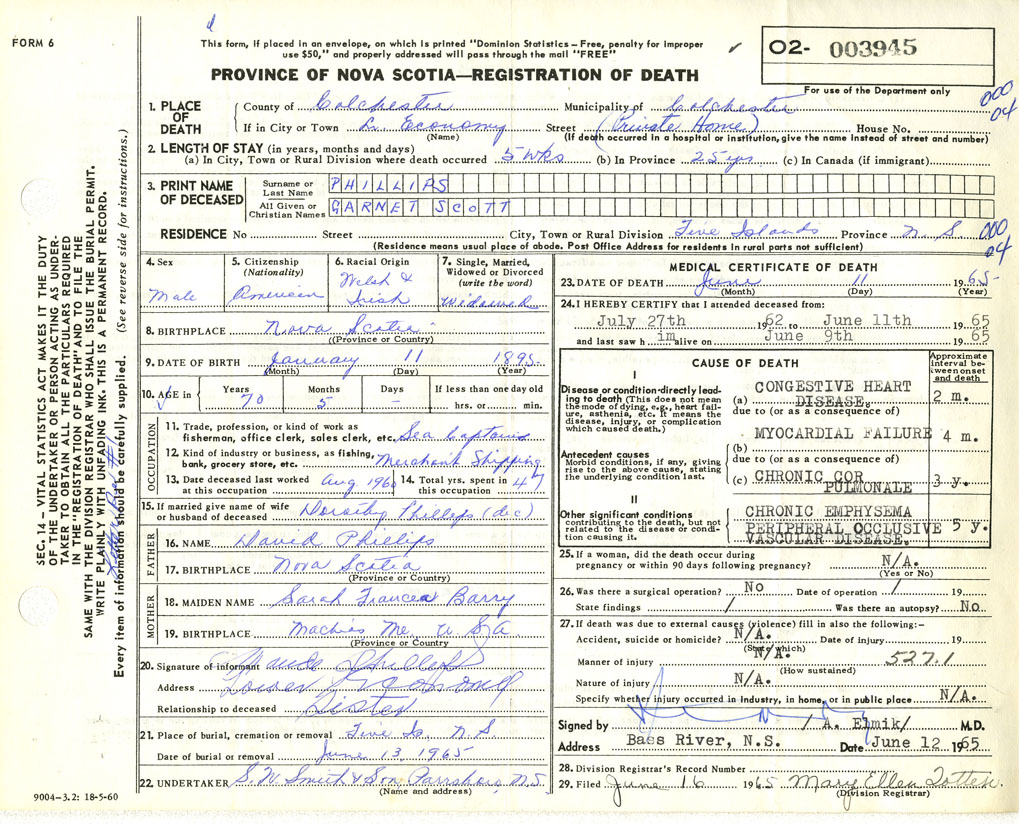 FORM 6
This form, if placed in an envelope, on which is printed "Dominion Statistics – Free, penalty for improper
use $50," and properly addressed will pass through the mail "FREE"
PROVINCE OF NOVA SCOTIA—REGISTRATION OF DEATH
O2- 003945
For use of the Department only
000
04
1. PLACE OF DEATH
County of Colchester Municipality of Colchester
If in City or Town L. Economy Street (Private Home) House No.
(Name) (If death occurred in a hospital or institution, give the name instead of street and number)
2. LENGTH OF STAY (in years, months and days)
(a) In City, Town or Rural Division where death occurred 5 wks (b) In Province 25 yrs (c) In Canada (if immigrant)
3. PRINT NAME OF DECEASED
Surname or Last Name PHILLIPS
All Given or Christian Names GARNET SCOTT
RESIDENCE No Street City, Town or Rural Division Five Islands Province N. S.
000
04
(Residence means usual place of abode. Post Office Address for residents in rural parts not sufficient)
SEC. 14 – VITAL STATISTICS ACT MAKES IT THE DUTY
OF THE UNDERTAKER OR PERSON ACTING AS UNDER-
TAKER TO OBTAIN ALL THE PARTICULARS REQUIRED
IN THE "REGISTRATION OF DEATH" AND TO FILE THE
SAME WITH THE DIVISION REGISTRAR WHO SHALL ISSUE THE BURIAL PERMIT.
WRITE PLAINLY WITH UNFADING INK. THIS IS A PERMANENT RECORD.
Every item of information should be carefully supplied. (See reverse side for instructions.)
4. Sex Male
5. Citizenship (Nationality) American
6. Racial Origin Welsh & Irish
7. Single, Married, Widowed or Divorced (write the word) Widowed
8. BIRTHPLACE Nova Scotia
(Province or Country)
9. DATE OF BIRTH January 11 1895
(Month) (Day) (Year)
10. AGE in Years 70 Months 5 Days – If less than one day old hrs. or min.
OCCUPATION
11. Trade, profession, or kind of work as
fisherman, office clerk, sales clerk, etc. Sea Captain
12. Kind of industry or business, as fishing,
bank, grocery store, etc. Merchant Shipping
13. Date deceased last worked at this occupation Aug 1960
14. Total yrs. spent in this occupation 47
15. If married give name of wife or husband of deceased Dorothy Phillips (dec)
FATHER
16. NAME David Phillips
17. BIRTHPLACE Nova Scotia
(Province or Country)
MOTHER
18. MAIDEN NAME Sarah Frances Barry
19. BIRTHPLACE Machias Me. U S A
(Province or Country)
20. Signature of informant Phillips
Address Lower Economy
Relationship to deceased Sister
21. Place of burial, cremation or removal Five Is. N. S.
Date of burial or removal June 13, 1965
22. UNDERTAKER S. W. Smith & Son, Parrsboro, N.S.
(Name and address)
9004–3.2: 18-5-60
MEDICAL CERTIFICATE OF DEATH
23. DATE OF DEATH June 11 1965
(Month) (Day) (Year)
24. I HEREBY CERTIFY that I attended deceased from:
July 27th 1962 to June 11th 1965
and last saw him alive on June 9th 1965
CAUSE OF DEATH
Approximate interval between onset and death
I
Disease or condition directly lead-
ing to death (This does not mean
the mode of dying, e.g., heart fail-
ure, asthenia, etc. It means the
disease, injury, or complication
which caused death.)
(a) CONGESTIVE HEART DISEASE. 2 m.
due to (or as a consequence of)
Antecedent causes
Morbid conditions, if any, giving
rise to the above cause, stating
the underlying condition last.
(b) MYOCARDIAL FAILURE 4 m.
due to (or as a consequence of)
(c) CHRONIC COR PULMONALE 3 y.
II
Other significant conditions
contributing to the death, but not
related to the disease or condi-
tion causing it.
CHRONIC EMPHYSEMA
PERIPHERAL OCCLUSIVE 5 y.
VASCULAR DISEASE.
25. If a woman, did the death occur during
pregnancy or within 90 days following pregnancy? N/A.
(Yes or No)
26. Was there a surgical operation? No Date of operation / 19
State findings / Was there an autopsy? No.
27. If death was due to external causes (violence) fill in also the following:–
Accident, suicide or homicide? N/A. Date of injury 19
(State which)
Manner of injury N/A. 527.1
(How sustained)
Nature of injury N/A.
Specify whether injury occurred in industry, in home, or in public place N/A.
Signed by / A. Elmik/ M.D.
Address Bass River, N.S. Date June 12 1965
28. Division Registrar's Record Number
29. Filed June 16 1965 Mary Ellen Totten
(Division Registrar)